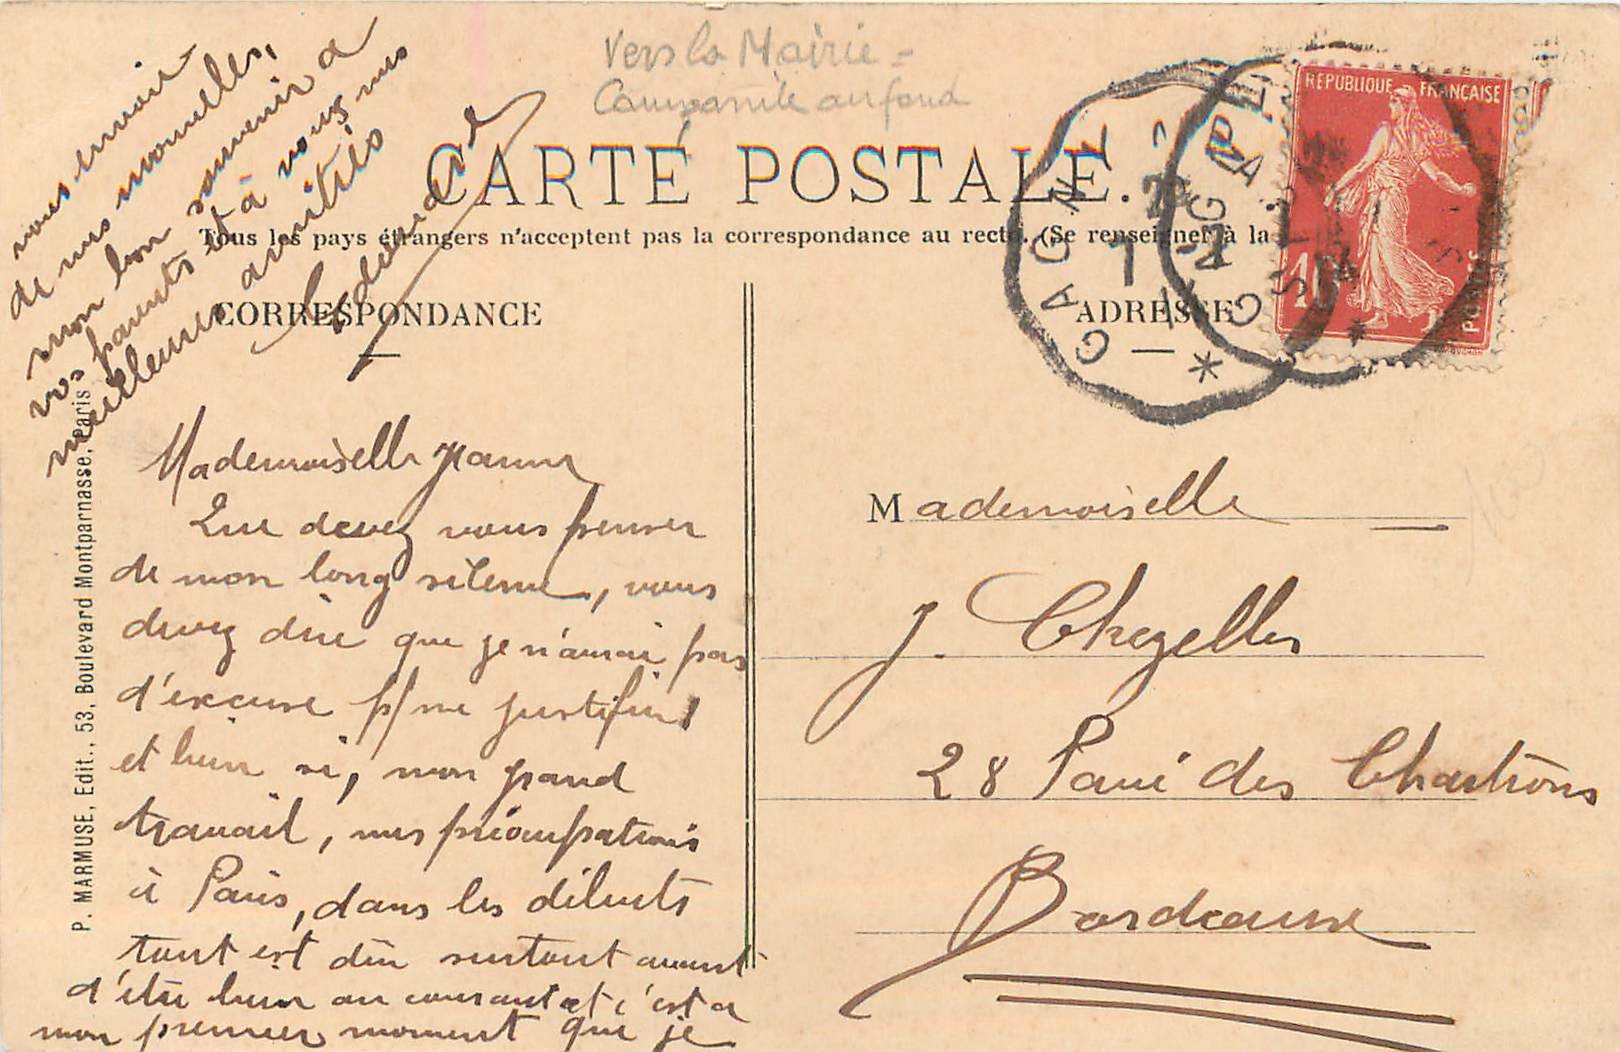 Vers la Mairie =
Campanile au fond
RÉPUBLIQUE FRANÇAISE
10
POSTES
GAGNY
CARTE POSTALE.
Tous les pays étrangers n'acceptent pas la correspondance au recto. (Se renseigner à la
CORRESPONDANCE
ADRESSE
P. MARMUSE, Edit., 53, Boulevard Montparnasse, Paris
Mademoiselle Jeanne
Que devez vous penser
de mon long silence, vous
devez dire que je n'aurai pas
d'excuse p/ me justifier
et bien si, mon grand
travail, mes préocupations
à Paris, dans les débuts
tout est dûr surtout avant
d'être bien au courant et c'est a
mon premier moment que je
vous envoie
de mes nouvelles,
mon bon souvenir a
vos parents et à vous mes
meilleures amitiés
Mademoiselle
J. Chezelles
28 Pavé des Chartrons
Bordeaux